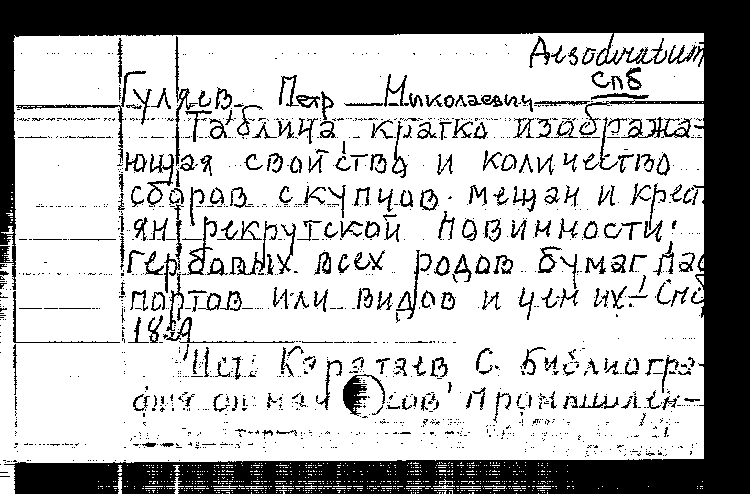 Desiderata
Спб
Гуляев, Петр Николаевич
Таблица, кратко изобража-
ющая свойство и количество
сборов с купцов. мещан и крест.
ян рекрутской повинности;
гербовых всех родов бумаг, пас
портов или видов и цен их.- Спб,
Ист: Каратаев С. Библиогра-
фия финансов, промышлен-